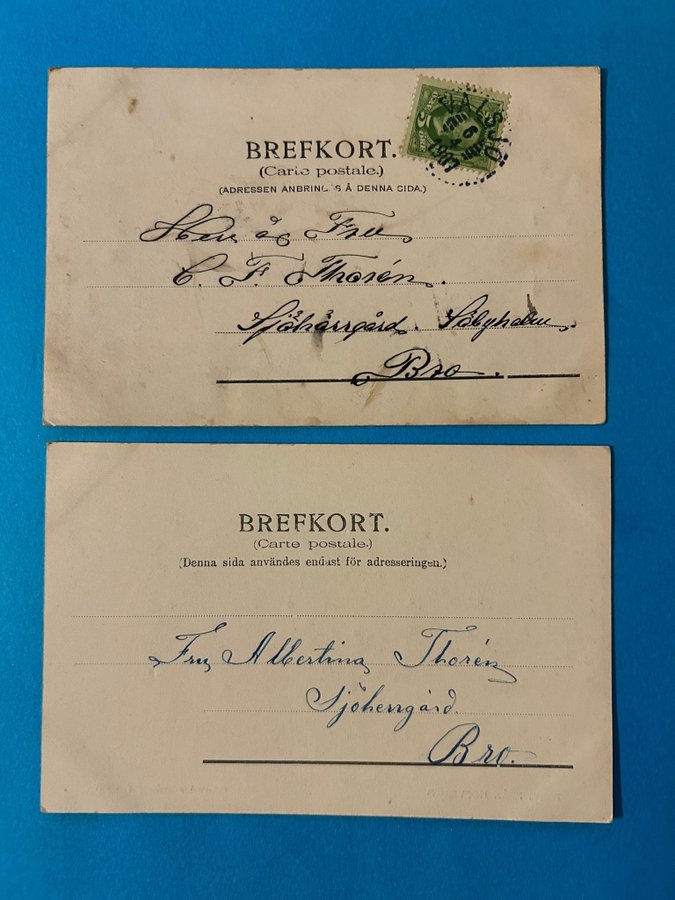 BREFKORT.
(Carte postale.)
(ADRESSEN ANBRINGAS Å DENNA SIDA.)
5
Herr & Fru
C. F. Thorén.
Sjöhärrgård. Säbyholm,
Bro.
BREFKORT.
(Carte postale.)
(Denna sida användes endast för adresseringen.)
Fru Albertina Thorén
Sjöherrgård.
Bro.